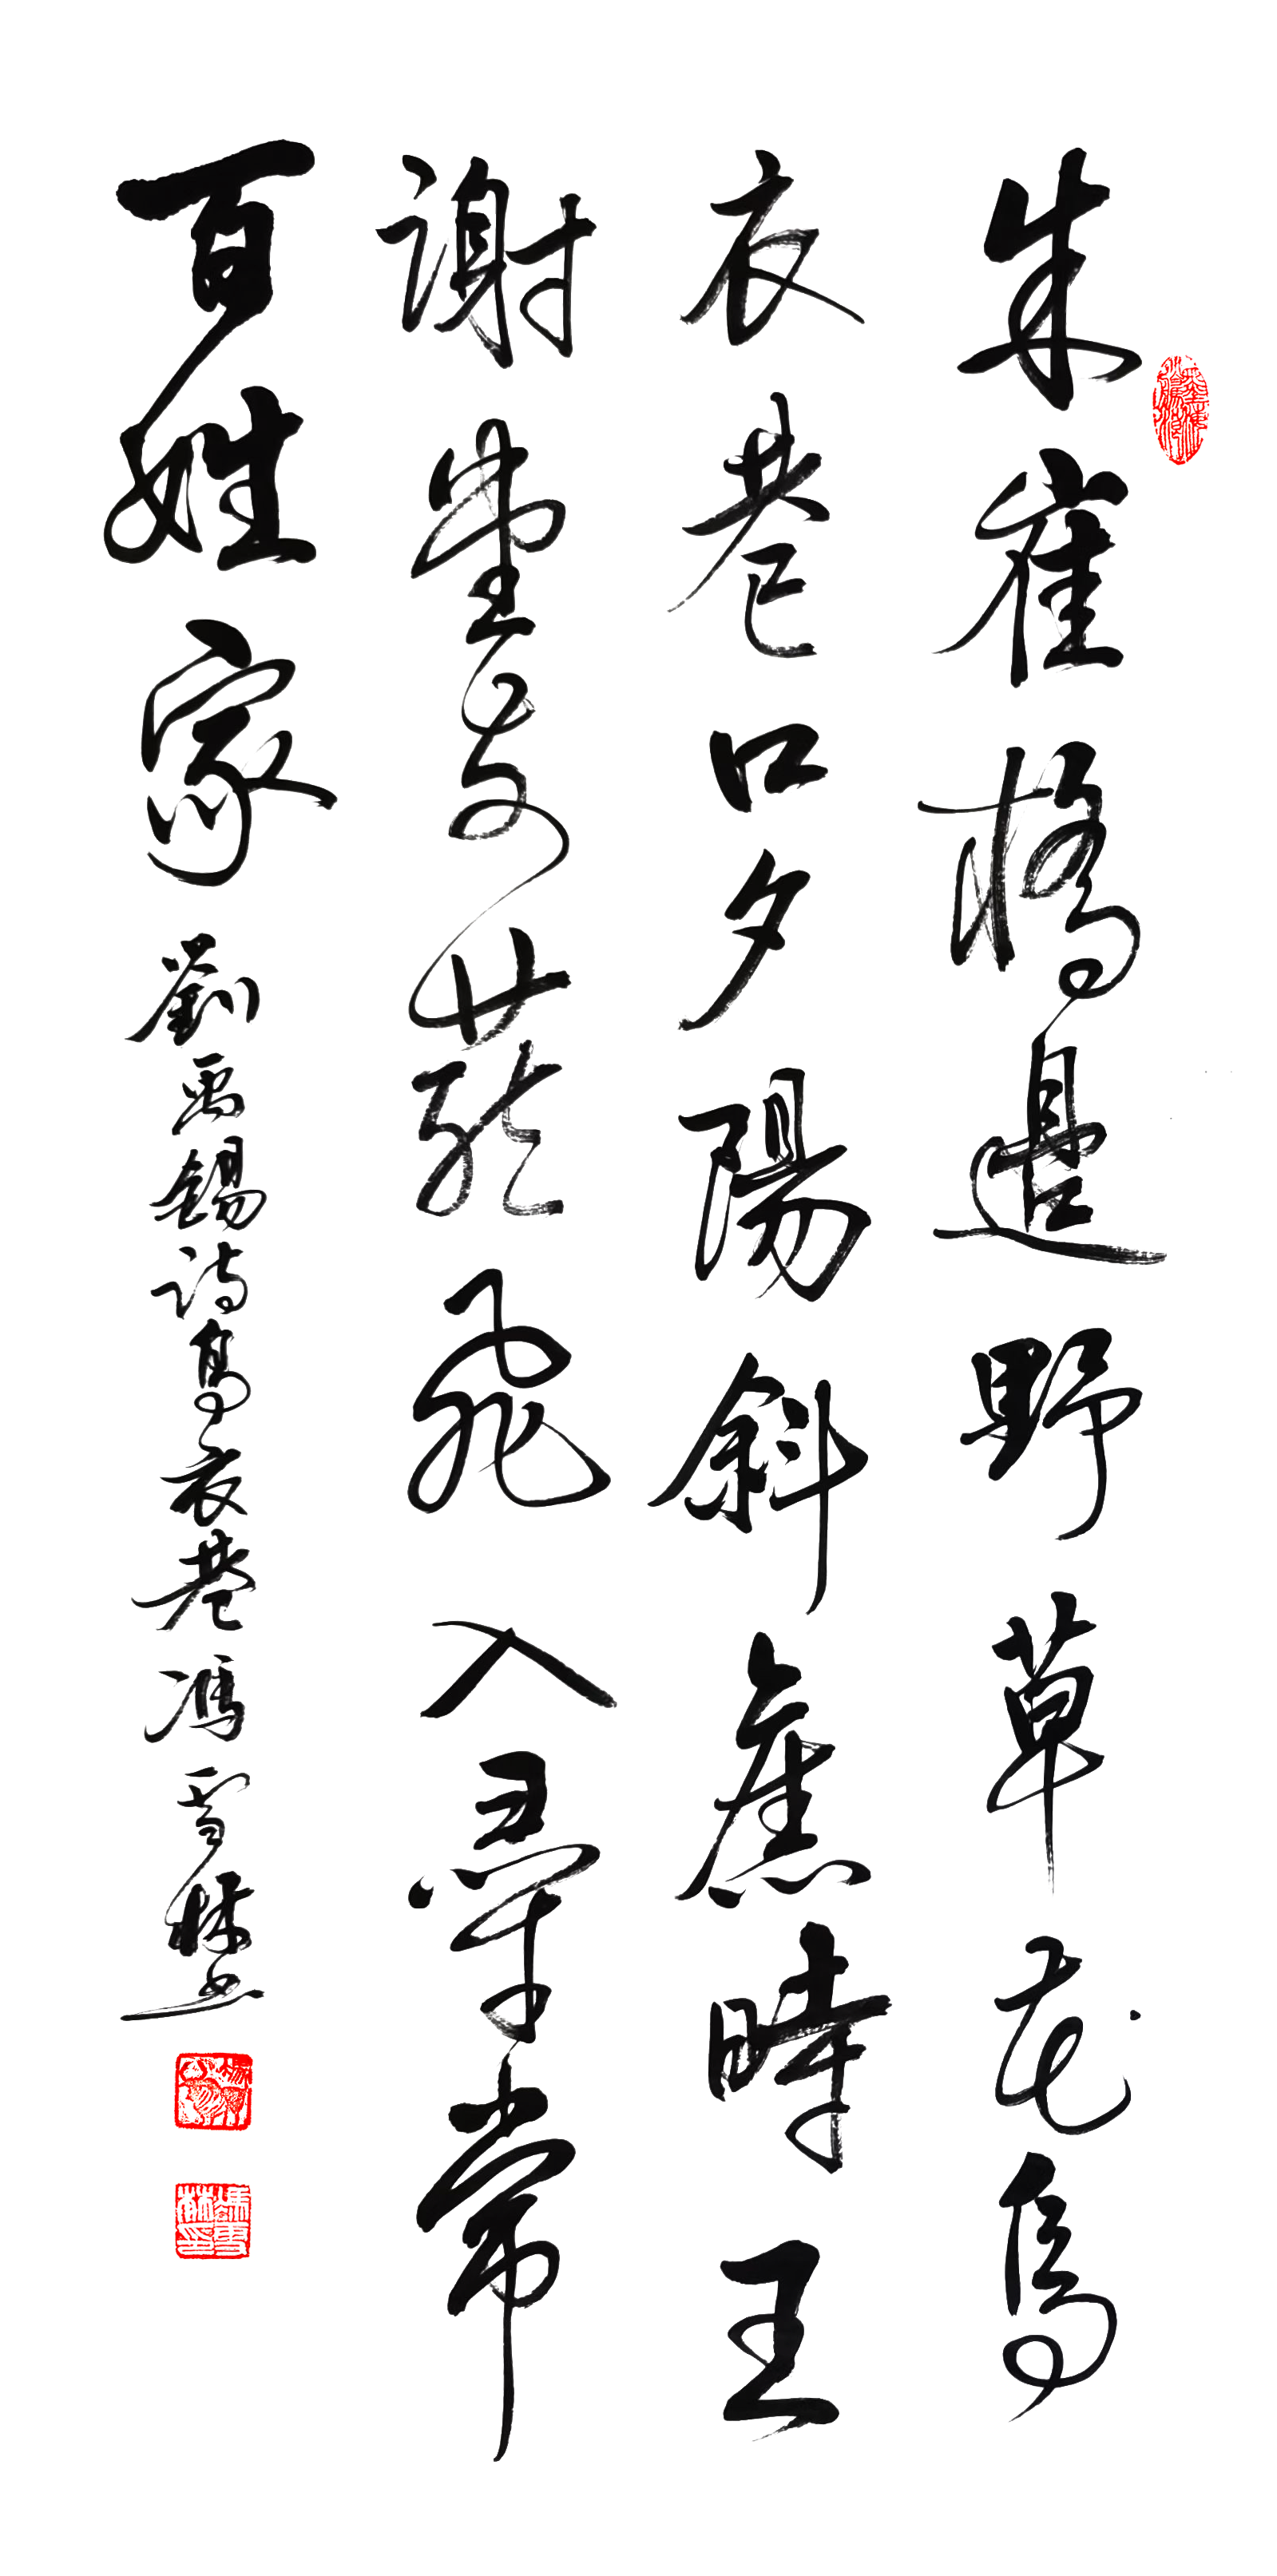 朱雀橋邊野草花烏
衣巷口夕陽斜舊時王
謝堂前燕飛入尋常
百姓家
劉禹錫詩烏衣巷馮雪林書